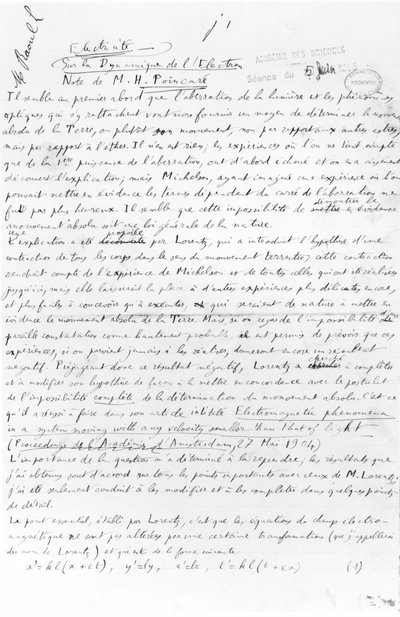 j 1
M Raoul
Electricité. —
ACADÉMIE DES SCIENCES
Sur la Dynamique de l'Electron
Séance du 5 Juin
Note de M. H. Poincaré
Il semble au premier abord que l'aberration de la lumière et les phénomènes
optiques qui s'y rattachent vont nous fournir un moyen de déterminer le mouvement
absolu de la Terre, ou plutôt son mouvement, non par rapport aux autres astres,
mais par rapport à l'éther. Il n'en est rien; les expériences où l'on ne tient compte
que de la 1ère puissance de l'aberration, ont d'abord échoué et on en a aisément
découvert l'explication; mais Michelson, ayant imaginé une expérience où l'on
pouvait mettre en évidence les termes dépendant du carré de l'aberration ne
fut pas plus heureux. Il semble que cette impossibilité de démontrer le
mouvement absolu soit une loi générale de la nature.
Une explication a été proposée par Lorentz, qui a introduit l'hypothèse d'une
contraction de tous les corps dans le sens du mouvement terrestre; cette contraction
rendrait compte de l'expérience de Michelson et de toutes celles qui ont été réalisées
jusqu'ici, mais elle laisserait la place à d'autres expériences plus délicates encore,
et plus faciles à concevoir qu'à exécuter, qui seraient de nature à mettre en
évidence le mouvement absolu de la Terre. Mais si on regarde l'impossibilité d'une
pareille constatation comme hautement probable, il est permis de prévoir que ces
expériences, si on parvient jamais à les réaliser, donneront encore un résultat
négatif. Préjugeant donc ce résultat négatif, Lorentz a cherché à compléter
et à modifier son hypothèse de façon à la mettre en concordance avec le postulat
de l'impossibilité complète de la détermination du mouvement absolu. C'est ce
qu'il a réussi à faire dans son article intitulé Electromagnetic phenomena
in a system moving with any velocity smaller than that of light
(Proceedings de l'Académie d'Amsterdam, 27 Mai 1904)
L'importance de la question m'a déterminé à la reprendre; les résultats que
j'ai obtenus sont d'accord sur tous les points importants avec ceux de M. Lorentz;
j'ai été seulement conduit à les modifier et à les compléter dans quelques points
de détail.
Le point essentiel, établi par Lorentz, c'est que les équations du champ électro-
magnétique ne sont pas altérées par une certaine transformation (que j'appellerai
du nom de Lorentz) et qui est de la forme suivante:
x' = kl(x+εt), y'=ly, z'=lz, t'=kl(t+εx) (1)